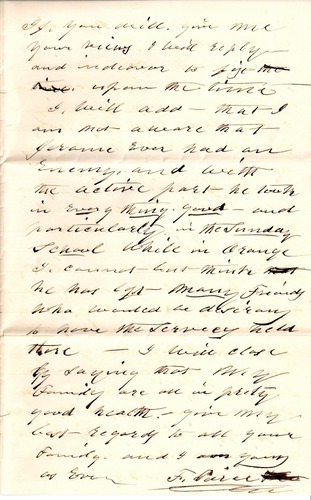 If, you will, give me
your views I will reply -
and indeavor to fix the
upon the time
I, will add - that I
am not aware that
Jerome Ever had an
Enemy, and with
the active part - he took
in Every thing good - and
particularly, in the Sunday
School while in Orange
I, cannot but think
he has left - Many Friends
who would be desirous
to have the services held
there - I will close
by saying that my
Family are all in pretty
good health - give my
best Regards to all your
Family. and I am yours
as Ever F.